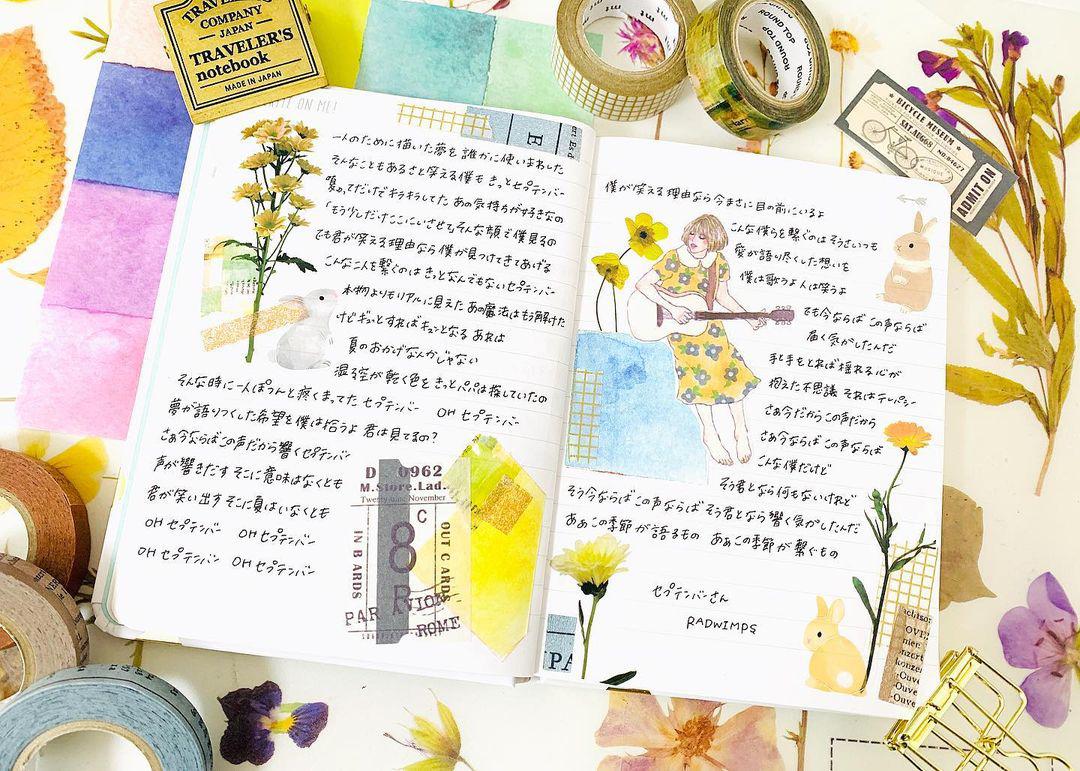 TRAVELER'S
COMPANY
JAPAN
TRAVELER'S
notebook
MADE IN JAPAN
WRITE ON ME!
mt
ROUND TOP
BICYCLE MUSEUM
ADMIT ON
一人のために描いた夢を 誰かに使いまわした
そんなこともあるさと笑える僕も きっとセプテンバー
夏ってだけでキラキラしてた あの気持ちが好きなの
「もう少しだけここにいさせて」そんな顔で僕見るの
でも君が笑える理由なら僕が見つけてきてあげる
こんな二人を繋ぐのは きっとなんでもないセプテンバー
本物よりもリアルに見えた あの魔法はもう解けた
けどギュッとすればキュンとなる あれは
夏のおかげなんかじゃない
湿る空が乾く色を きっとパパは探していたの
そんな時に一人ぽつんと疼くまってた セプテンバー OH セプテンバー
夢が語りつくした希望を 僕は拾うよ 君は見てるの?
さぁ今ならばこの声だから響くセプテンバー
声が響きだす そこに意味はなくとも
君が笑い出す そこに夏はいなくとも
OH セプテンバー OH セプテンバー
OH セプテンバー OH セプテンバー
D 0962
M.Store.Lad.
November
C
8
R
IN B ARDS
OUT C ARDS
PAR AVION
ROME
僕が笑える理由なら今まさに目の前にいるよ
こんな僕らを繋ぐのは そうさいつも
愛が語り尽くした想いを
僕は歌うよ 人は笑うよ
でも今ならば この声ならば
届く気がしたんだ
手と手をとれば揺れる心が
抱えた不思議 それはテレパシー
さぁ今だからこの声だから
さぁ今ならばこの声ならば
こんな僕だけど
そう君となら何もないけれど
そう今ならばこの声ならばそう君となら響く気がしたんだ
あぁこの季節が語るもの あぁこの季節が繋ぐもの
セプテンバーさん
RADWIMPS